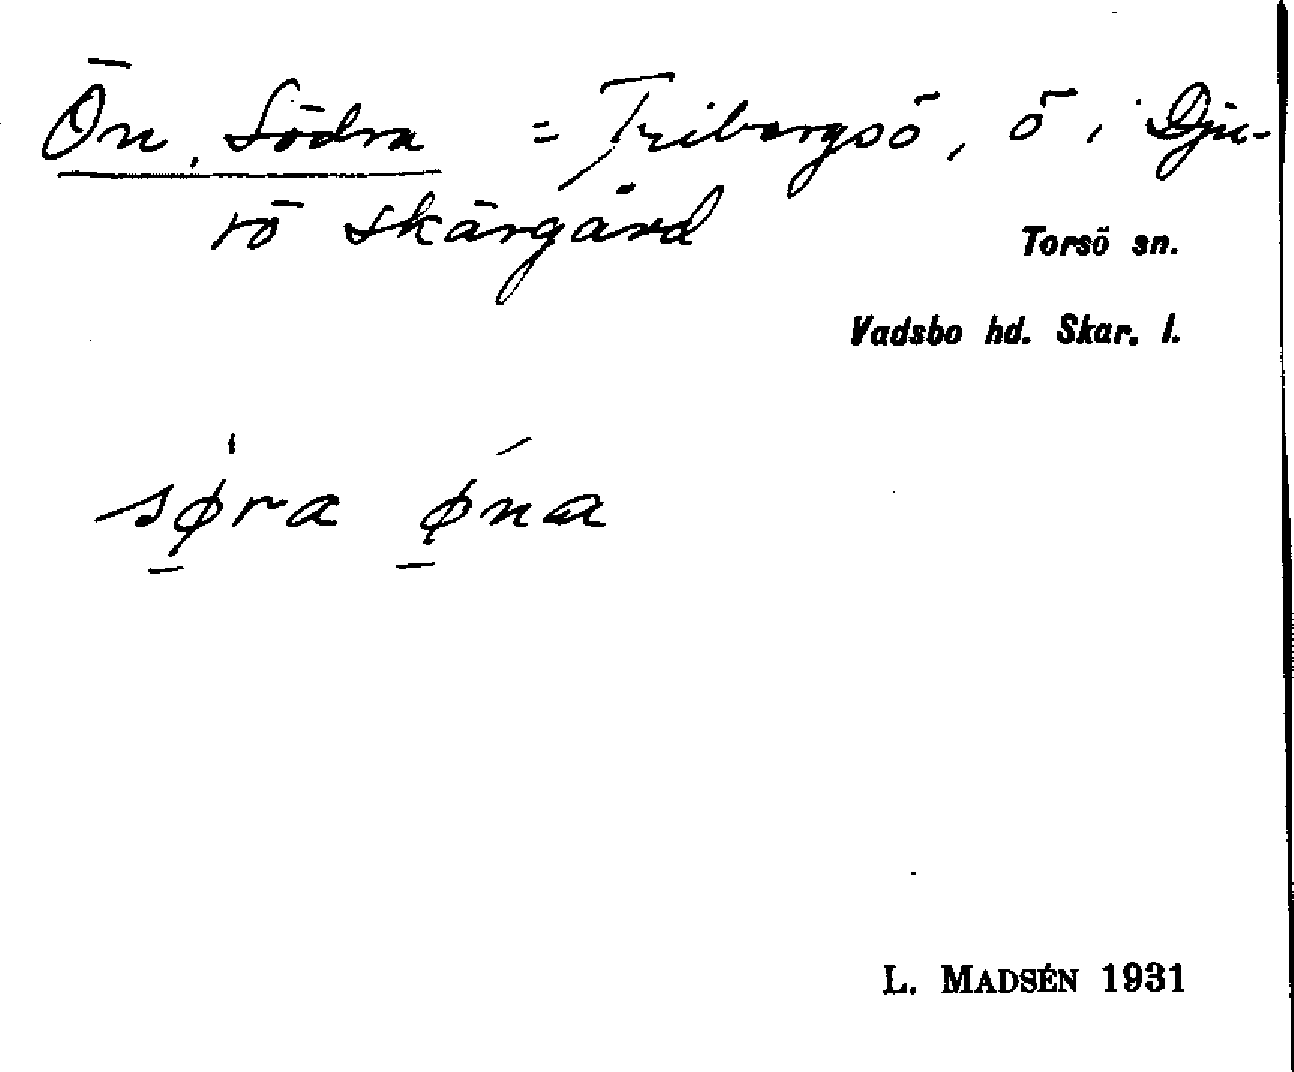 Ön, Södra = Fribergsö, ö i Dju-
rö skärgård
Torsö sn.
Vadsbo hd. Skar. l.
sø̱ra ø̱na
L. MADSÉN 1931